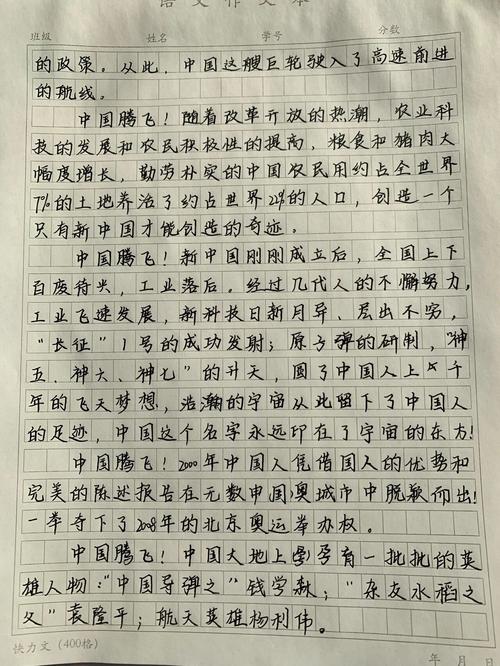 语文作文本
班级 姓名 学号 分数
的政策。从此，中国这艘巨轮驶入了高速前进
的航线。
中国腾飞！随着改革开放的热潮，农业科
技的发展和农民积极性的提高，粮食和猪肉大
幅度增长，勤劳朴实的中国农民用约占全世界
7%的土地养活了约占世界22%的人口，创造一个
只有新中国才能创造的奇迹。
中国腾飞！新中国刚刚成立后，全国上下
百废待兴，工业落后。经过几代人的不懈努力，
工业飞速发展，新科技日新月异、层出不穷，
“长征”1号的成功发射；原子弹的研制，“神
五、神六、神七”的升天，圆了中国人上千
年的飞天梦想，浩瀚的宇宙从此留下了中国人
的足迹，中国这个名字永远印在了宇宙的东方！
中国腾飞！2000年中国人凭借国人的优势和
完美的陈述报告在无数申国奥城市中脱颖而出！
一举夺下了2008年的北京奥运举办权。
中国腾飞！中国大地上孕育一批批的英
雄人物：“中国导弹之”钱学森；“杂友水稻之
父”袁隆平；航天英雄杨利伟。
快力文（400格） 年 月 日